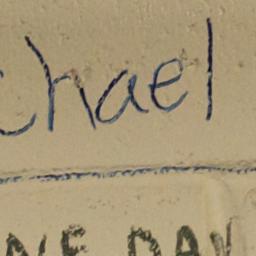 chael
NE DAY